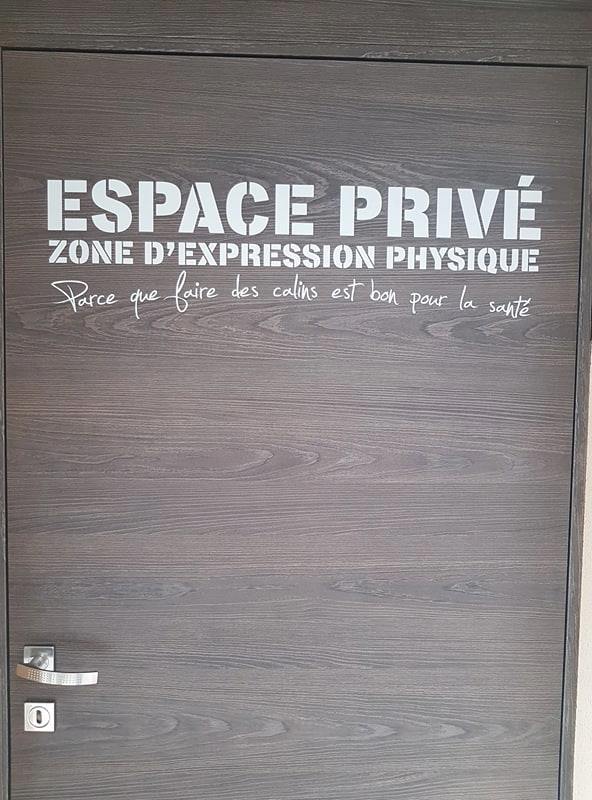 ESPACE PRIVÉ
ZONE D'EXPRESSION PHYSIQUE
Parce que faire des calins est bon pour la santé